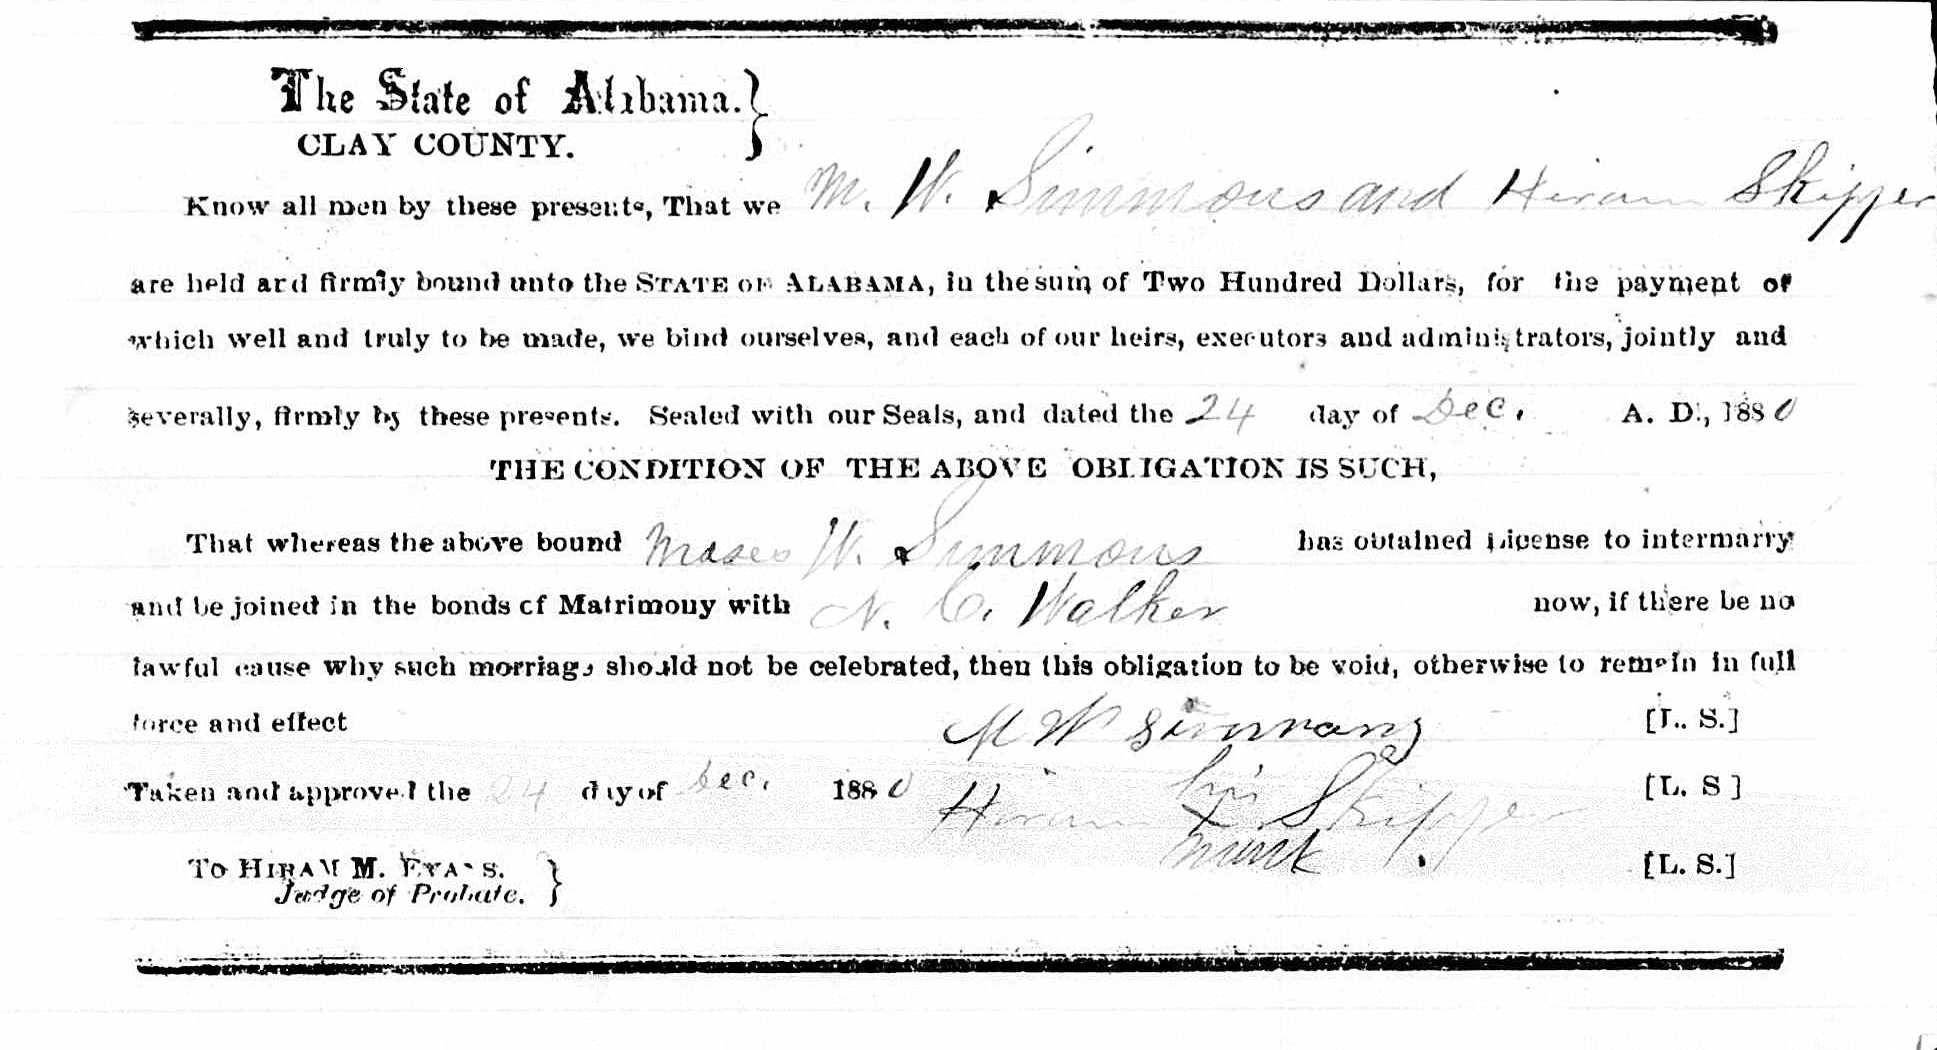 The State of Alabama.
CLAY COUNTY.
Know all men by these presents, That we M. W. Simmons and Hiram Skipper
are held and firmly bound unto the STATE OF ALABAMA, in the sum of Two Hundred Dollars, for the payment of
which well and truly to be made, we bind ourselves, and each of our heirs, executors and administrators, jointly and
severally, firmly by these presents. Sealed with our Seals, and dated the 24 day of Dec. A. D., 1880
THE CONDITION OF THE ABOVE OBLIGATION IS SUCH,
That whereas the above bound Moses W. Simmons has obtained License to intermarry
and be joined in the bonds of Matrimony with N. C. Walker now, if there be no
lawful cause why such morriage should not be celebrated, then this obligation to be void, otherwise to remain in full
force and effect M W Simmons [L. S.]
Taken and approved the 24 day of Dec. 1880 Hiram his X mark Skipper [L. S]
TO HIRAM M. EVANS. [L. S.]
Judge of Probate.